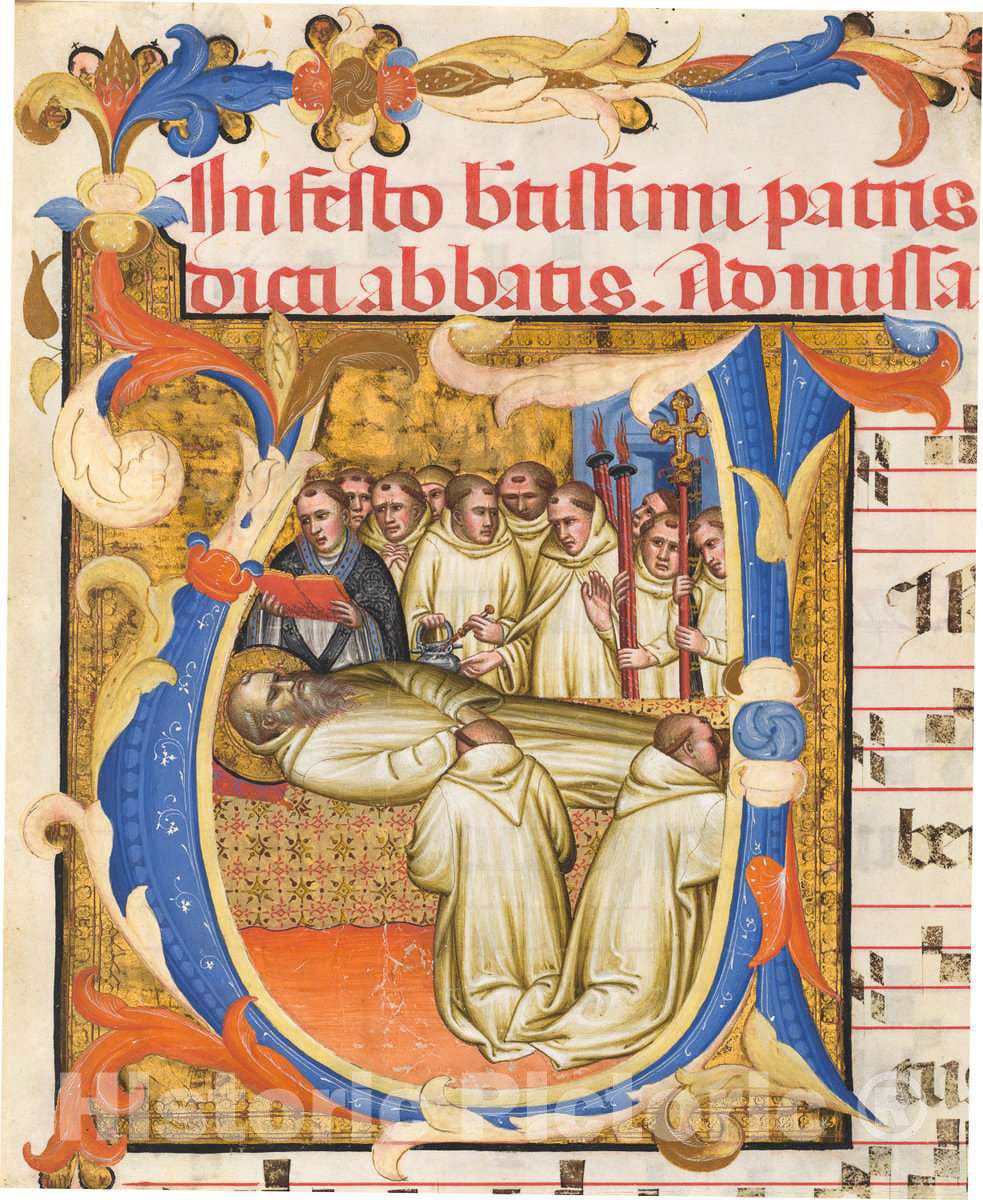 In festo b̄tissimi patris
dicti abbatis. Ad missa
le
tus
Historic Pictoric ®